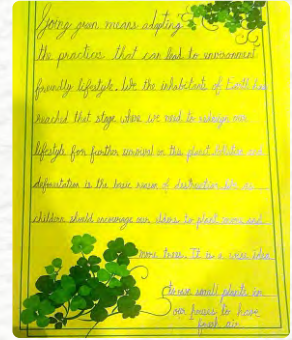 Going green means adopting
the practices that can lead to environment
friendly lifestyle. We the inhabitants of Earth has
reached that stage where we need to redesign our
lifestyle for further survival on this planet. Pollution and
deforestation is the basic reason of destruction. We as
children should encourage our elders to plant more and
more trees. It is a wise idea
to use small plants in
our houses to have
fresh air